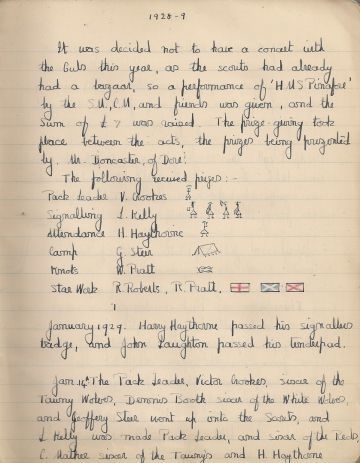 1928-9
It was decided not to have a concert with
the Cubs this year, as the scouts had already
had a bazaar, so a performance of 'H.M.S Pinafore'
by the S.M., C.M, and friends was given, and the
Sum of £7 was raised. The prize-giving took
place between the acts, the prizes being presented
by Mr. Doncaster, of Dore.
The following received prizes:-
Pack Leader V. Crookes
Signalling L. Kelly
Attendance H. Haythorne
Camp G. Steer
Knots W. Pratt
Star Work R. Roberts, R. Pratt.
January 1929. Harry Haythorne passed his signallers
badge, and John Laughton passed his tenderpad.
Jan. 14th The Pack Leader, Victor Crookes, sixer of the
Tawny Wolves, Dennis Booth sixer of the White Wolves
and Geoffery Steer went up into the Scouts, and
L Kelly was made Pack Leader, and sixer of the Reds
C. Mather sixer of the Tawnys and H. Haythorne